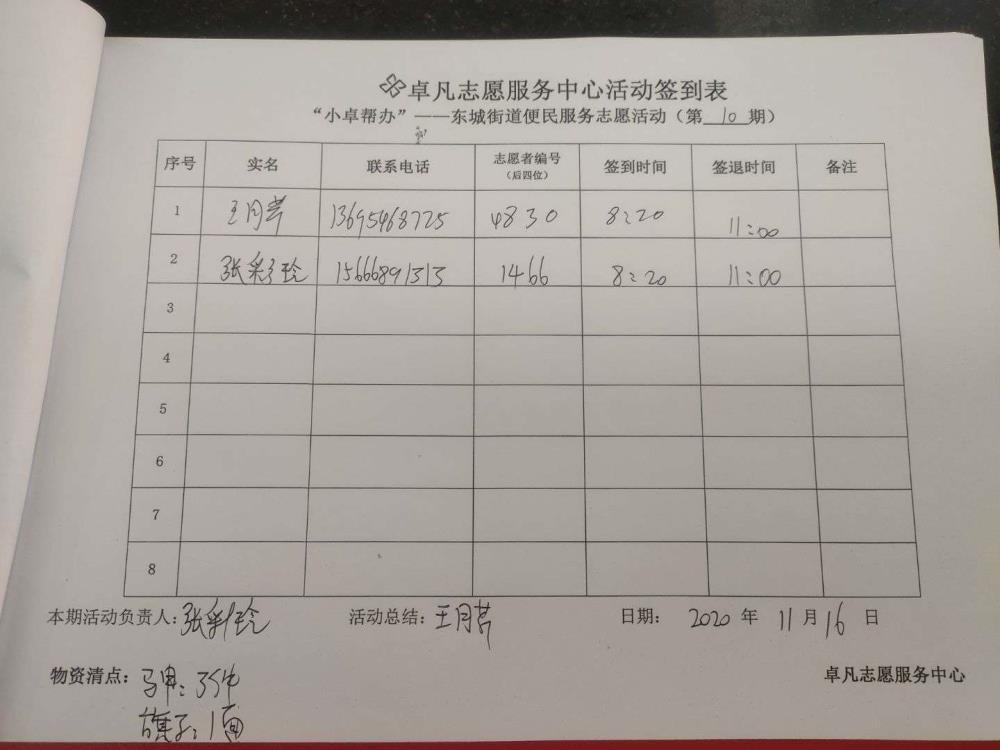 卓凡志愿服务中心活动签到表
“小卓帮办”——东城街道便民服务志愿活动（第 10 期）
序号 实名 联系电话 志愿者编号（后四位） 签到时间 签退时间 备注
1 王月芹 13695468725 4830 8:20 11:00
2 张彩玲 15666891313 1466 8:20 11:00
3
4
5
6
7
8
本期活动负责人：张彩玲 活动总结：王月芹 日期： 2020 年 11 月 16 日
物资清点：马甲：35件 卓凡志愿服务中心
旗子：1面